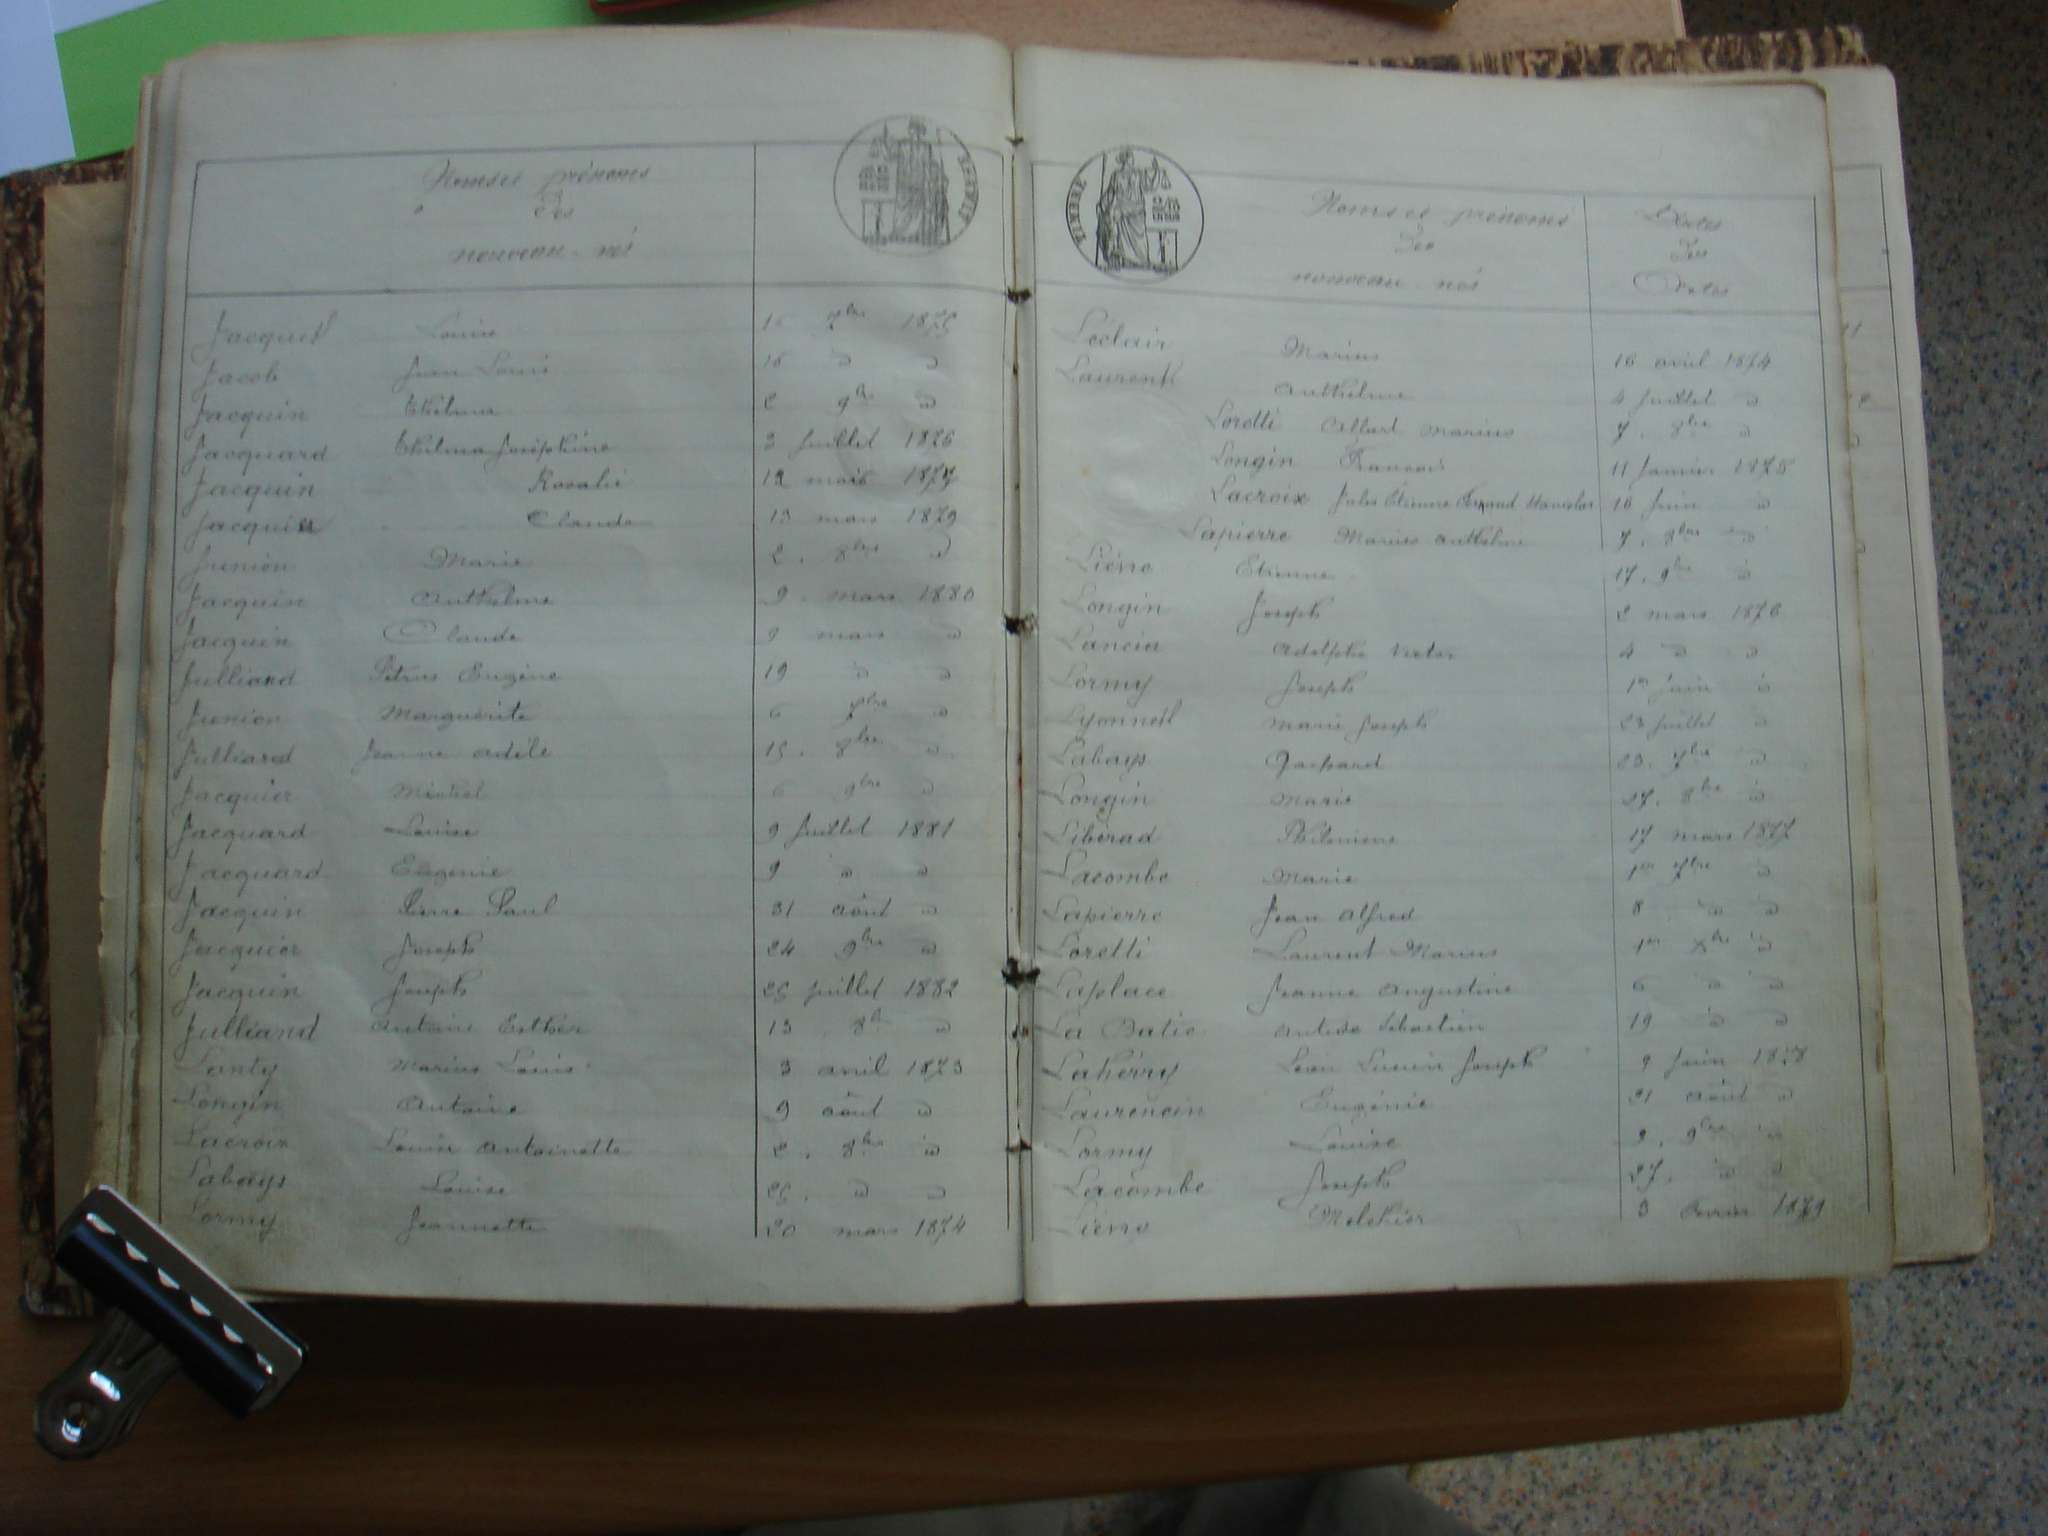 Noms et prénoms
des
nouveau-nés
Jacquet Louise 16 7bre 1875
Jacob Jean Louis 16 d d
Jacquin Thelma 2 9bre d
Jacquard Thelma Joséphine 3 Juillet 1876
Jacquin Rosalie 12 mars 1877
Jacquier Claude 13 mars 1879
Junion Marie 2. 8bre d
Jacquin Anthelme 9. mars 1880
Jacquin Claude 9 mars d
Julliard Pétrus Eugène 19 d d
Junion Marguerite 6 7bre d
Julliard Jeanne Adèle 15. 8bre d
Jacquier Michel 6 9bre d
Jacquard Louise 9 Juillet 1881
Jacquard Eugénie 9 d d
Jacquin Pierre Paul 31 août d
Jacquier Joseph 24 9bre d
Jacquin Joseph 25 juillet 1882
Julliand Antoine Esther 13 8b d
Lanty Marius Louis 3 avril 1873
Longin Antoine 9 août d
Lacroix Louise Antoinette 2. 8bre d
Labays Louise 25. d d
Lormy Jeannette 20 mars 1874
TIMBRE
Noms et prénoms
des
nouveau-nés
Dates
des
Actes
Léclair Marius 16 avril 1874
Laurent Anthelme 4 Juillet d
Loretti Albert Marius 7. 8bre d
Longin François 11 Janvier 1875
Lacroix Jules Étienne Stanislas 16 Juin d
Lapierre Marius Anthelme 7. 8bre d
Liéne Etienne 17. 9bre d
Longin Joseph 2 mars 1876
Lancia Adolphe Victor 4 d d
Lormy Joseph 1er juin d
Lyonnet Marie Joseph 23 juillet d
Labays Gaspard 23. 7bre d
Longin Marie 27. 8bre d
Libérad Philomène 17 mars 1877
Lacombe Marie 1er 7bre d
Lapierre Jean Alfred 8 d d
Loretti Laurent Marius 1er Xbre d
Laplace Jeanne Augustine 6 d d
La Sébastien 19 d d
Lahérry Léon Lucien Joseph 9 Juin 1878
Laurencin Eugénie 21 août d
Lormy Louise 2. 9bre d
Lacombe Joseph 27. d d
Liéne Melchior 3 février 1879